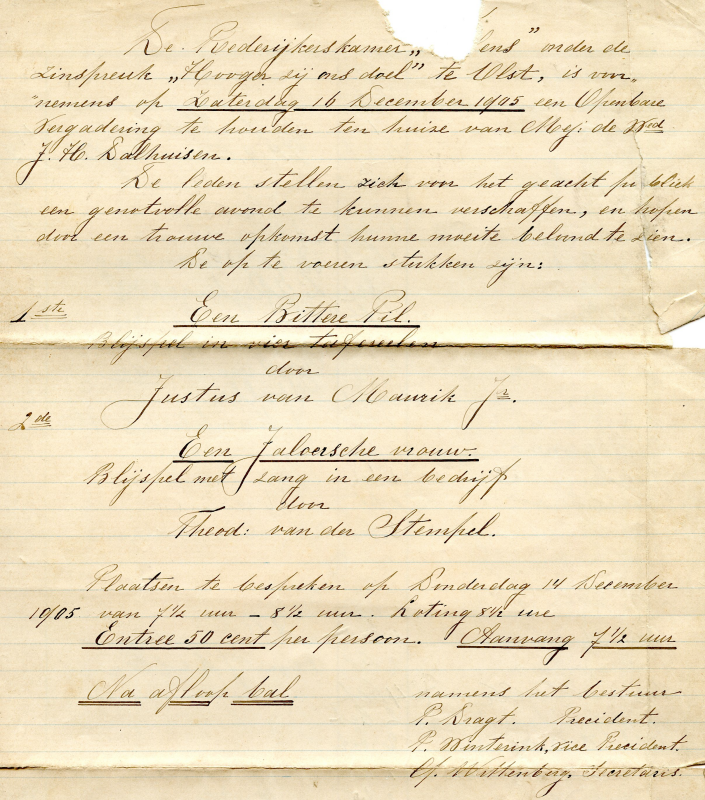 De Rederijkerskamer „ ens" onder de
zinspreuk „Hooger zij ons doel" te Olst, is voor„
"nemens op Zaterdag 16 December 1905 een Openbare
Vergadering te houden ten huize van Mej: de Wed
J. H. Dalhuisen.
De leden stellen zich voor het geacht publiek
een genotvolle avond te kunnen verschaffen, en hopen
door een trouwe opkomst hunne moeite beloond te zien.
De op te voeren stukken zijn:
1ste Een Bittere Pil.
Blijspel in vier tafereelen
door
Justus van Maurik Jr.
2de
Een Jaloersche vrouw.
Blijspel met zang in een bedrijf
door
Theod: van der Stempel.
Plaatsen te bespreken op Donderdag 14 December
1905 van 7½ uur – 8½ uur. Loting 8½ ure
Entree 50 cent per persoon. Aanvang 7½ uur
Na afloop bal
namens het bestuur
P. Dragt. Precident.
P. Winterink, vice Precident.
Wittenberg. Secretaris.